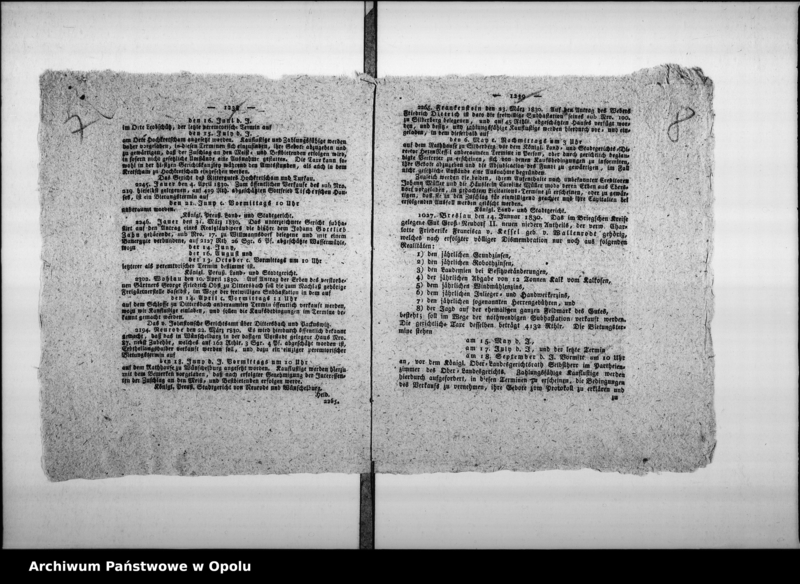 — 1238 —
den 16. Juni d. J.
im Orte Leobschütz, der letzte peremtorische Termin auf
den 23. July d. J.
am Orte Hochkretscham angesetzt worden. Kauflustige und Zahlungsfähige werden
daher vorgeladen, in diesen Terminen sich einzufinden, ihre Gebote abzugeben und
demnächst, daß der Zuschlag an den Meist- und Bestbietenden erfolgen wird,
in sofern nicht gesetzliche Umstände eine Ausnahme gestatten. Die Taxe kann so-
wohl in der hiesigen Gerichtskanzley während den Amtsstunden, als auch in dem
Kretscham zu Hochkretscham eingesehen werden.
Das Gericht des Rittergutes Hochkretscham und Turkau.
2245. Jauer den 4. April 1830. Zum öffentlichen Verkaufe des sub Nro.
229. hieselbst gelegenen, auf 479 Rth. abgeschätzten Gottfried Tischerschen Hau-
ses, ist ein Bietungstermin auf
den 22. Juny c. Vormittags 10 Uhr
anberaumt worden.
Königl. Preuß. Land- und Stadtgericht.
2246. Jauer den 31. März 1830. Das unterzeichnete Gericht subha-
stirt auf den Antrag eines Realgläubigers die bisher dem Johann Gottlieb
Jahn gehörende, sub Nro. 17. zu Willmannsdorf belegene und mit einem
Bauergute verbundene, auf 2127 Rth. 26 Sgr. 6 Pf. abgeschätzte Wassermühle,
wozu
der 14. Juny,
der 16. August und
der 23. October c. Vormittags um 10 Uhr
letzterer als peremtorischer Termin bestimmt ist.
Königl. Preuß. Land- und Stadtgericht.
2300. Wohlau den 10. April 1830. Auf Antrag der Erben des verstorbe-
nen Gärtners George Friedrich Obst zu Dittersbach soll die zum Nachlaß gehörige
Freigärtnerstelle daselbst, im Wege der freiwilligen Subhastation in dem auf
den 14. April c. Vormittags 11 Uhr
auf dem Schlosse zu Dittersbach anberaumten Termin öffentlich verkauft werden,
wozu wir Kauflustige einladen, und sollen die Kaufsbedingungen im Termine be-
kannt gemacht werden.
Das v. Intersensche Gerichtsamt über Dittersbach und
2194. Neurode den 12. März 1830. Es wird hierdurch öffentlich bekannt
gemacht, daß das in Wünschelburg in der dasigen Vorstadt gelegene Haus Nro.
27. nebst Zubehör, welches auf 162 Rthlr. 3 Sgr. 4 Pf. abgeschätzt worden ist,
Erbtheilungshalber verkauft werden soll, und dazu ein einziger peremtorischer
Bietungstermin auf
den 18. Juny d. J. Vormittags um 10 Uhr
auf dem Rathhause zu Wünschelburg angesetzt worden. Kauflustige werden hierzu
mit dem Bemerken vorgeladen, daß nach erfolgter Genehmigung der Interessen-
ten der Zuschlag an den Meist- und Bestbietenden erfolgen werde.
Königl. Preuß. Stadtgericht von Neurode und Wünschelburg.
2265.
7
— 1239 —
8
2265. Frankenstein den 23. März 1830. Auf den Antrag des Webers
Friedrich Dittrich ist dato die freiwillige Subhastation seines sub Nro. 100.
zu Silberberg belegenen, und auf 45 Rthlr. abgeschätzten Hauses verfügt wor-
den, und besitz- und zahlungsfähige Kauflustige werden hierdurch vor- und ein-
geladen, in dem dieserhalb auf
den 6. May c. Nachmittags um 3 Uhr
auf dem Rathhause zu Silberberg, vor dem Königl. Land- und Stadtgerichts-Di-
rector anberaumten Termine in Person, oder durch gerichtlich beglau-
bigte Vertreter zu erscheinen, sich von denen Kaufsbedingungen zu informiren,
ihr Gebot abzugeben und die Adjudication des Fundi zu gewärtigen, im Fall
nicht gesetzliche Umstände eine Ausnahme begründen.
Königl. Land- und Stadtgericht.
1027. Breslau den 14. Januar 1830. Das im Brieg'schen Kreise
gelegene Gut Groß-Neudorf II. neuen niedern Antheils, der verw. Char-
lotte Friederike Franciska v. Kessel geb. v. Wallenrodt gehörig,
welches nach erfolgter völliger Dismembration nur noch aus folgenden
Realitäten:
1) den jährlichen Grundzinsen,
2) den jährlichen Robothzinsen,
3) den Laudemien bei Besitzveränderungen,
4) der jährlichen Abgabe von 12 Tonnen Kalk vom Kalkofen,
5) dem jährlichen Windmühlenzins,
6) dem jährlichen Inlieger- und Handwerkerzins,
7) den jährlichen sogenannten Herrengebühren, und
8) der Jagd auf der ehemaligen ganzen Feldmark des Gutes,
besteht, soll im Wege der nothwendigen Subhastation verkauft werden.
Die gerichtliche Taxe desselben beträgt 4132 Rthlr. Die Bietungster-
mine stehen
am 15. May d. J.
am 17. July d. J., und der letzte Termin
am 18. September d. J. Vormitt. um 10 Uhr
an, vor dem Königl. Ober-Landesgerichtsrath im Partheien-
zimmer des Ober-Landesgerichts. Zahlungsfähige Kauflustige werden
hierdurch aufgefordert, in diesen Terminen zu erscheinen, die Bedingungen
des Verkaufs zu vernehmen, ihre Gebote zum Protokoll zu erklären und
zu
Archiwum Państwowe w Opolu